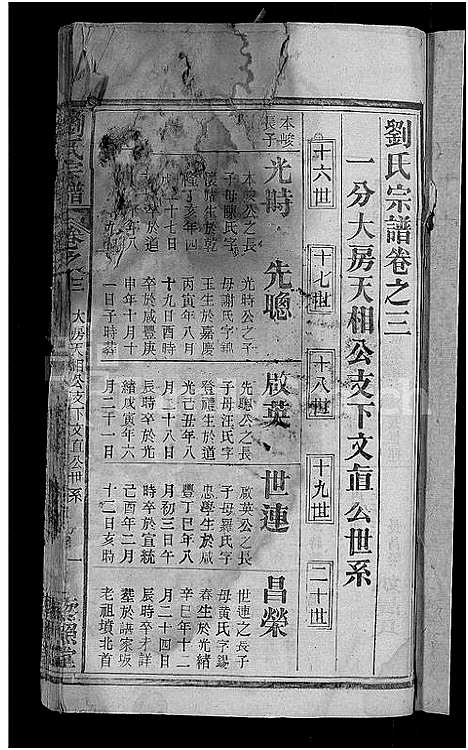 劉氏宗譜卷之三
一分大房天相公支下文直公世系
十六世
十七世
十八世
十九世
二十世
本峻
長子
光時
本峻公之長
子母陳氏字
生於乾
丁亥年
二十七日
卒於道
年八
先聰
光時公之子
母謝氏字
玉生於嘉慶
丙寅年八月
十九日酉時
卒於咸豐庚
申年十月十
一日子時葬
啟英
先聰公之長
子母汪氏字
登禮生於道
光己丑年八
月二十八日
辰時卒於光
緒戊寅年六
月二十一日
世連
啟英公之長
子母羅氏字
忠學生於咸
豐丁巳年八
月初三日午
時卒於宣統
己酉年二月
十二日亥時
昌榮
世連之長子
母黃氏字錫
春生於光緒
辛巳年十二
月二十四日
辰時卒未詳
墓於謀家坂
老祖墳北首
劉氏宗譜
卷之三
大房天相公支下文直公世系
一
藜照堂